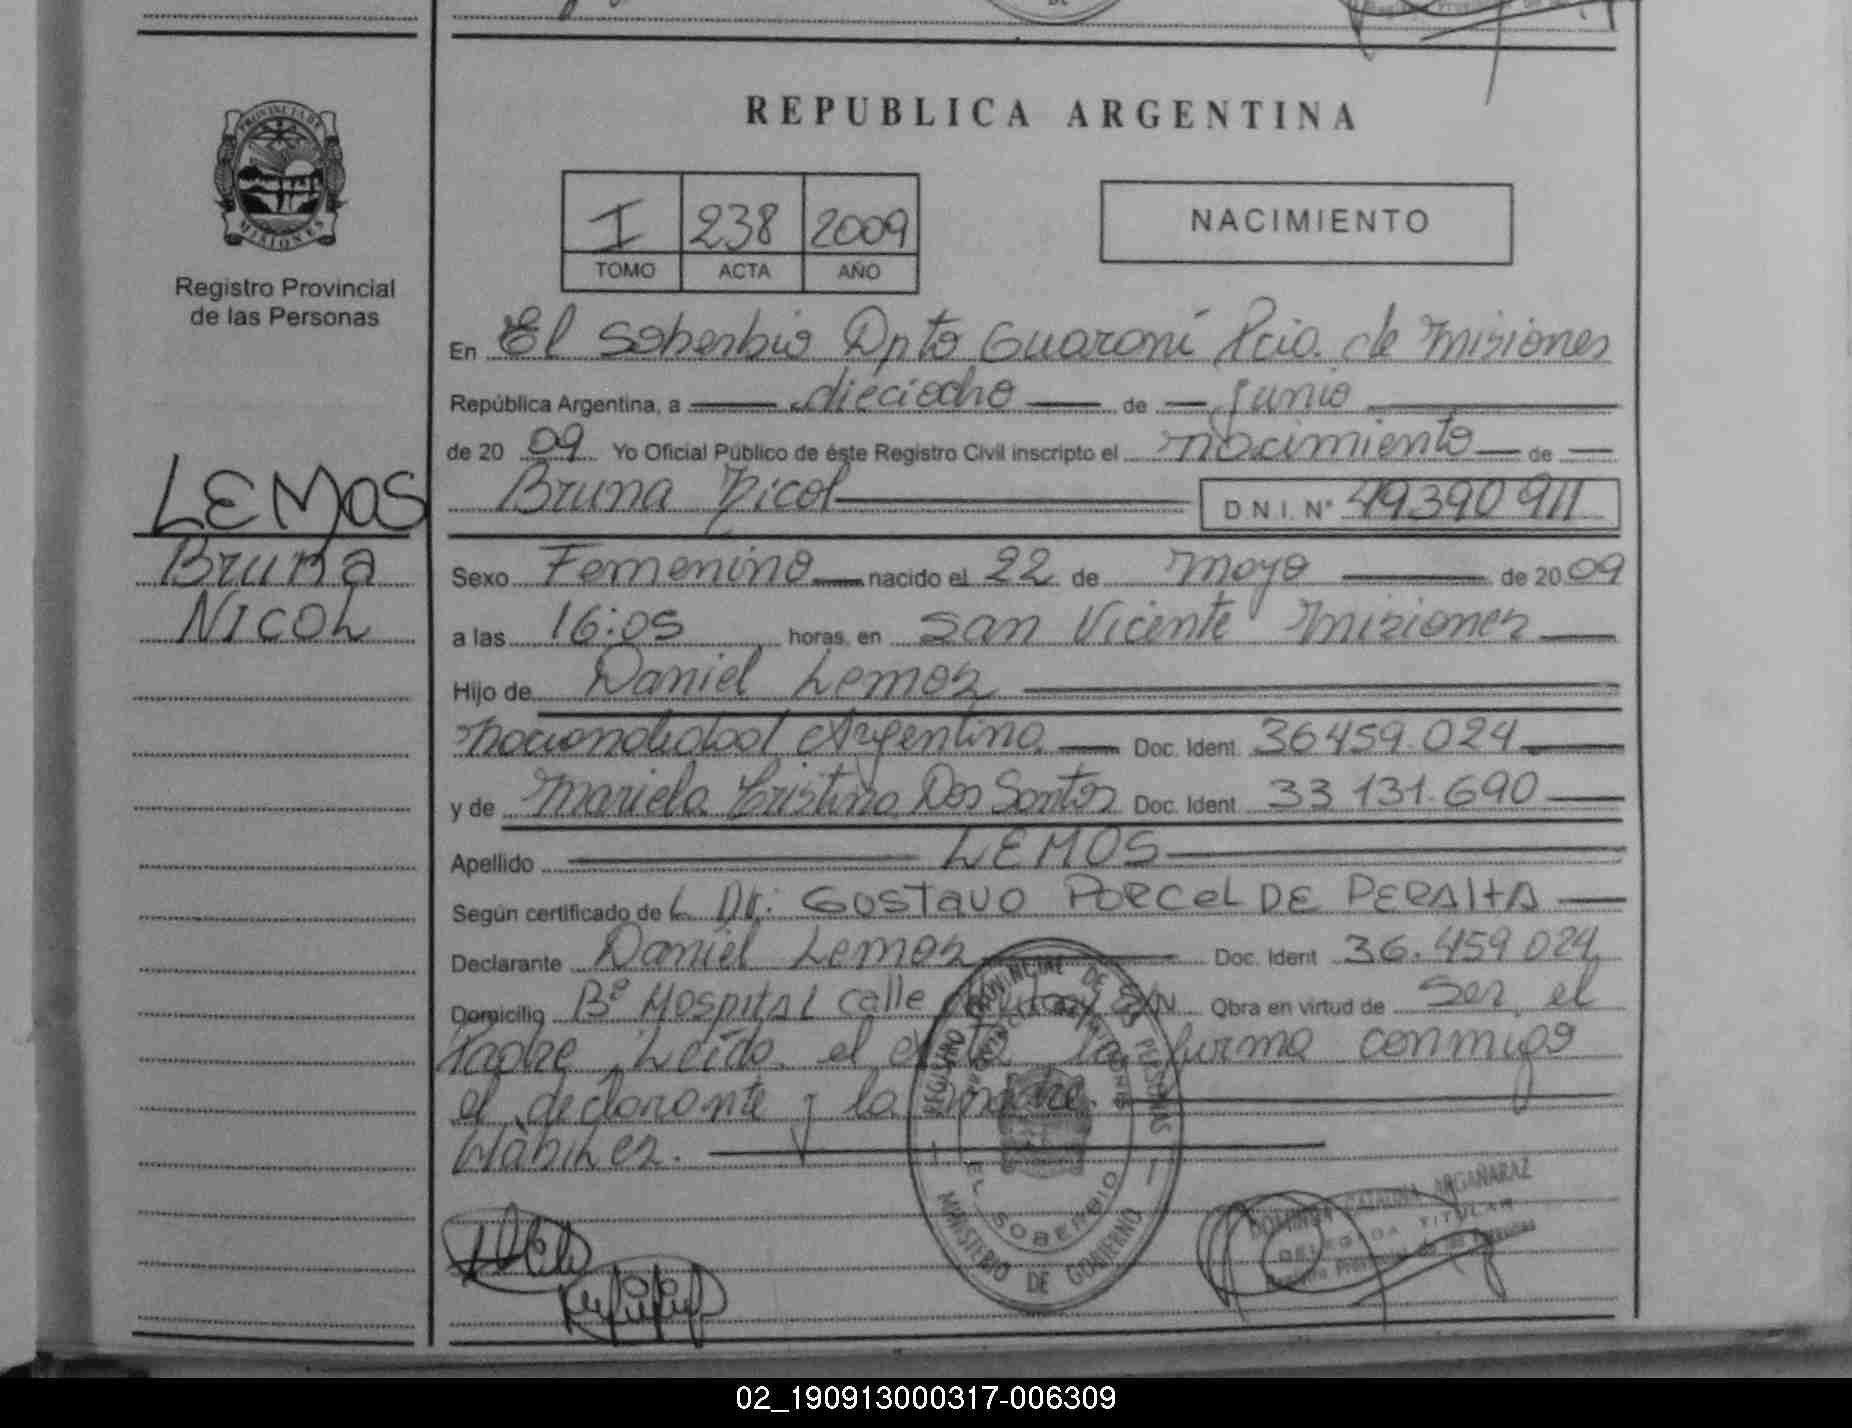 REPUBLICA ARGENTINA
PROVINCIA DE
MISIONES
Registro Provincial
de las Personas
I 238 2009
TOMO ACTA AÑO
NACIMIENTO
En El Soberbio Dpto Guaraní Pcia. de Misiones
República Argentina, a dieciocho de junio
de 20 09 Yo Oficial Público de éste Registro Civil inscripto el nacimiento de
Bruna Nicol D.N.I. Nº 49390911
LEMOS
Bruna
NICOL
Sexo Femenino nacido el 22 de Mayo de 20 09
a las 16:05 horas, en San Vicente Misiones
Hijo de Daniel Lemos
nacionalidad Argentina Doc. Ident. 36459.024
y de Mariela Cristina Dos Santos Doc. Ident. 33 131.690
Apellido LEMOS
Según certificado de L Dr: GUSTAVO PORCEL DE PERALTA
Declarante Daniel Lemos Doc. Ident 36.459 024
Domicilio Bº HOSPITAL calle S/N Obra en virtud de Ser el
Padre, Leída el firma conmigo
el declarante y la madre.
Hábiles.
REGISTRO PROVINCIAL DE LAS PERSONAS
PROVINCIA DE MISIONES
EL SOBERBIO
MINISTERIO DE GOBIERNO
CATALINA ARGAÑARAZ
DELEGADA TITULAR
Registro Provincial de las Personas
02_190913000317-006309